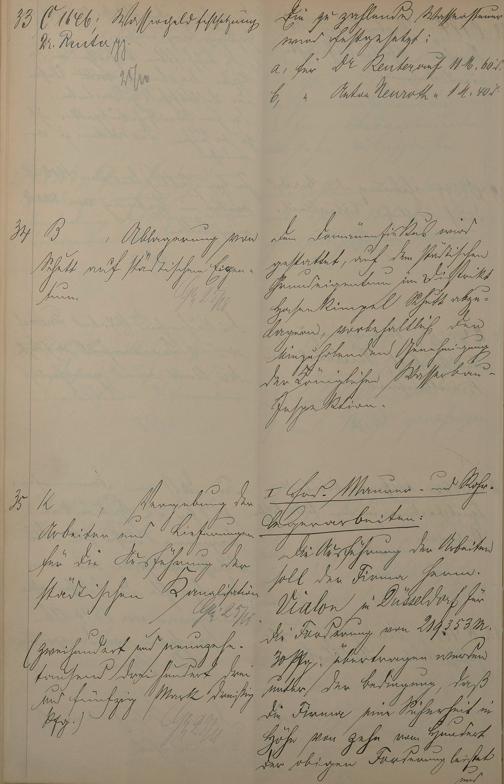 33 C 1646; Wassergeldfestsetzung
Dr. Reuter
Die zu zahlende Wassersteuer
wird festgesetzt:
a, für Dr Reuter auf 11 M. 60 d
b, " Anton Neuroth " 1 M. 40 d
34 B , Ablagerung von
Schutt auf städtischem Eigen-
tum.
Dem Domänenfiskus wird
gestattet, auf dem städtischen
Grundeigentum im Distrikt
Schutt abzu-
lagern, vorbehaltlich der
einzuholenden Genehmigung
der Königlichen Wasserbau-
Inspektion.
35 K , Vergebung der
Arbeiten und Lieferungen
für die Ausführung der
städtischen Kanalisation
(zweihundert und neunzehn-
tausend dreihundert drei
und fünfzig Mark dreißig
Pfg.)
I Maurer- und Rohr-
legerarbeiten:
Die Ausführung der Arbeiten
soll der Firma Herm.
Vialon in Düsseldorf für
die Forderung von 219353 M.
30 Pfg. übertragen werden
unter der Bedingung, daß
die Firma eine Sicherheit in
Höhe von zehn vom Hundert
der obigen Forderung leistet
und